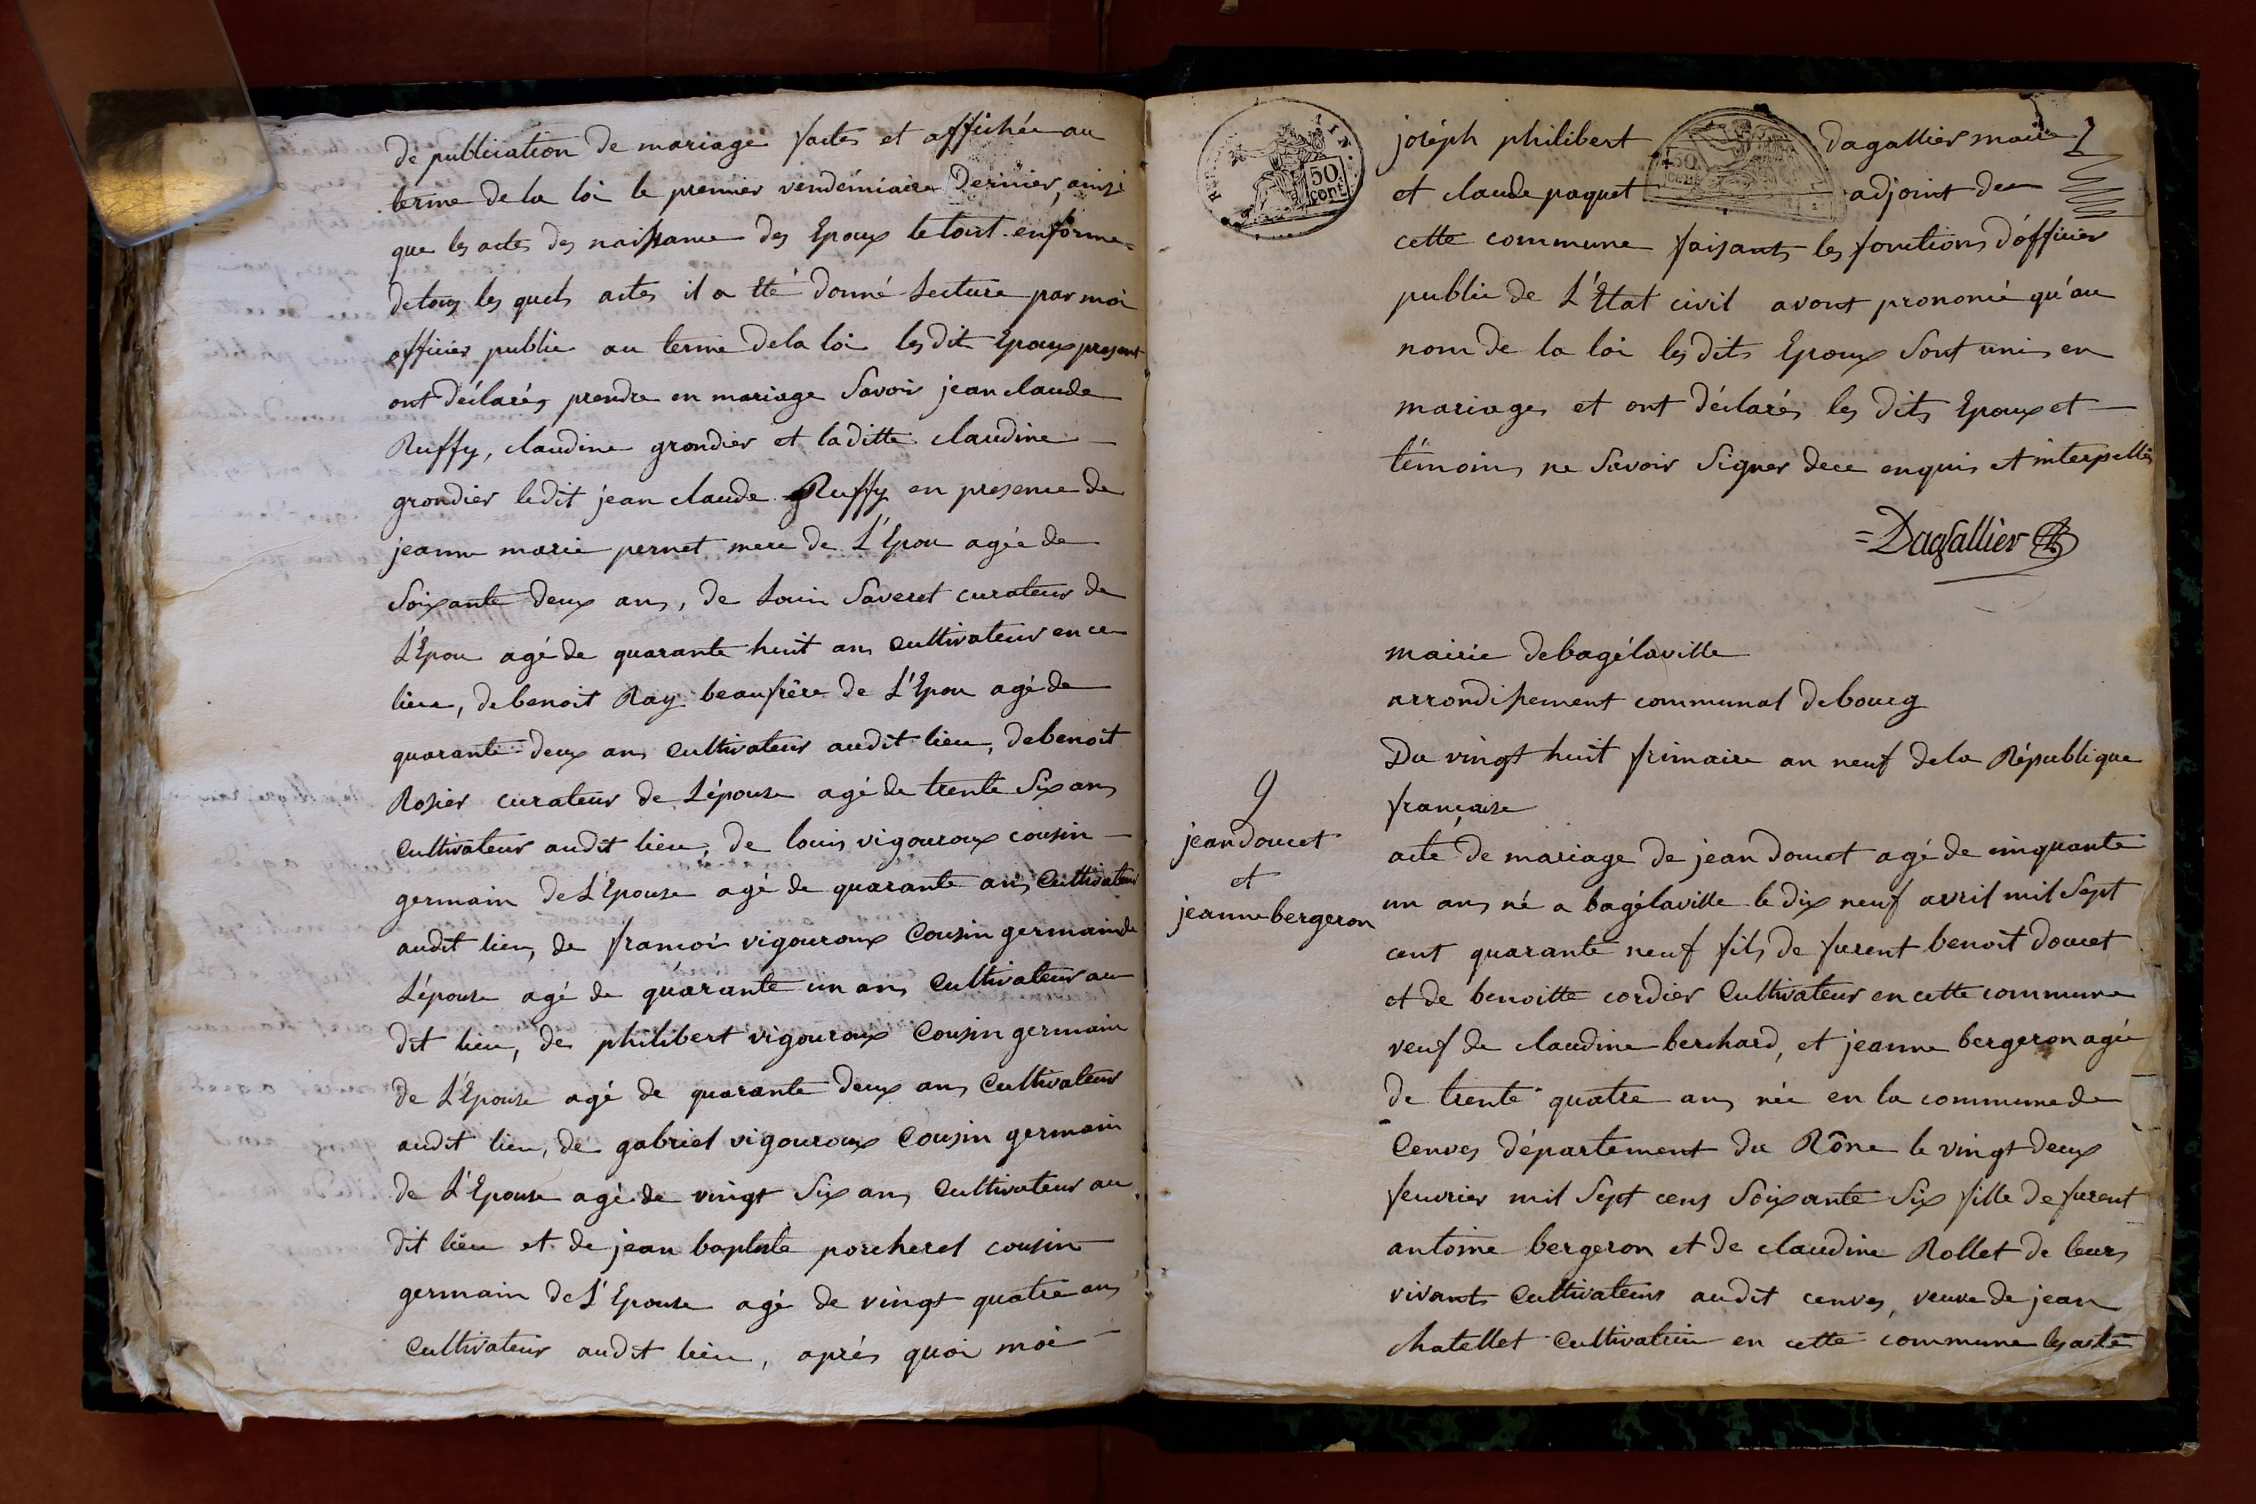 de publiciation de mariage faites et affichée au
terme de la loi le premier vendémiaire Dernier, ainsi
que les actes des naissance des Epoux le tout en forme
de tous les quels actes il a êté donné Lecture par moi
officier public au terme de la loi les dit Epoux present
ont déclarés prendre en mariage Savoir jean claude
Ruffy, claudine grondier et laditte claudine
grondier ledit jean claude Ruffy en presence de
jeanne marie pernet mere de L'Epou agée de
Soixante deux ans, de Louis Saveret curateur de
L'Epou agé de quarante huit ans Cultivateur en ce
lieu, de benoit Ray beaufrère de L'Epou agé de
quarante deux ans Cultivateur audit lieu, de benoit
Rosier curateur de L'épouse agé de trente Six ans
Cultivateur audit lieu, de louis vigouroux cousin
germain de L'Epouse agé de quarante ans Cultivateur
audit lieu, de francois vigouroux Cousin germain de
L'épouse agé de quarante un ans Cultivateur au
dit lieu, de philibert vigouroux Cousin germain
de L'Epouse agé de quarante deux ans Cultivateur
audit lieu, de gabriel vigouroux Cousin germain
de L'Epouse agé de vingt Six ans Cultivateur au
dit lieu et de jean baptiste porcherel cousin
germain de L'Epouse agé de vingt quatre ans
Cultivateur audit lieu, après quoi moi
50
cent
joseph philibert dagallier maire
et claude paquet adjoint de
cette commune faisants les fonctions d'officier
public de L'Etat civil avont prononcé qu'au
nom de la loi les dits Epoux Sont unis en
mariages et ont déclarés les dits Epoux et
témoins ne Savoir Signer de ce enquis et interpellés
=Dagallier
mairie de bagélaville
arrondissement communal de bourg
Du vingt huit frimaire an neuf de la République
française
9
jean doucet
et
jeanne bergeron
acte de mariage de jean doucet agé de cinquante
un ans né a bagélaville le dix neuf avril mil Sept
cent quarante neuf fils de furent benoit doucet
et de benoitte cordier Cultivateur en cette commune
veuf de claudine berchard, et jeanne bergeron agée
de trente quatre ans née en la commune de
Cenves département du Rône le vingt deux
feuvrier mil Sept cens Soixante Six fille de furent
antoine bergeron et de claudine Rollet de leurs
vivants Cultivateurs audit cenves, veuve de jean
chatellet Cultivateur en cette commune les acte